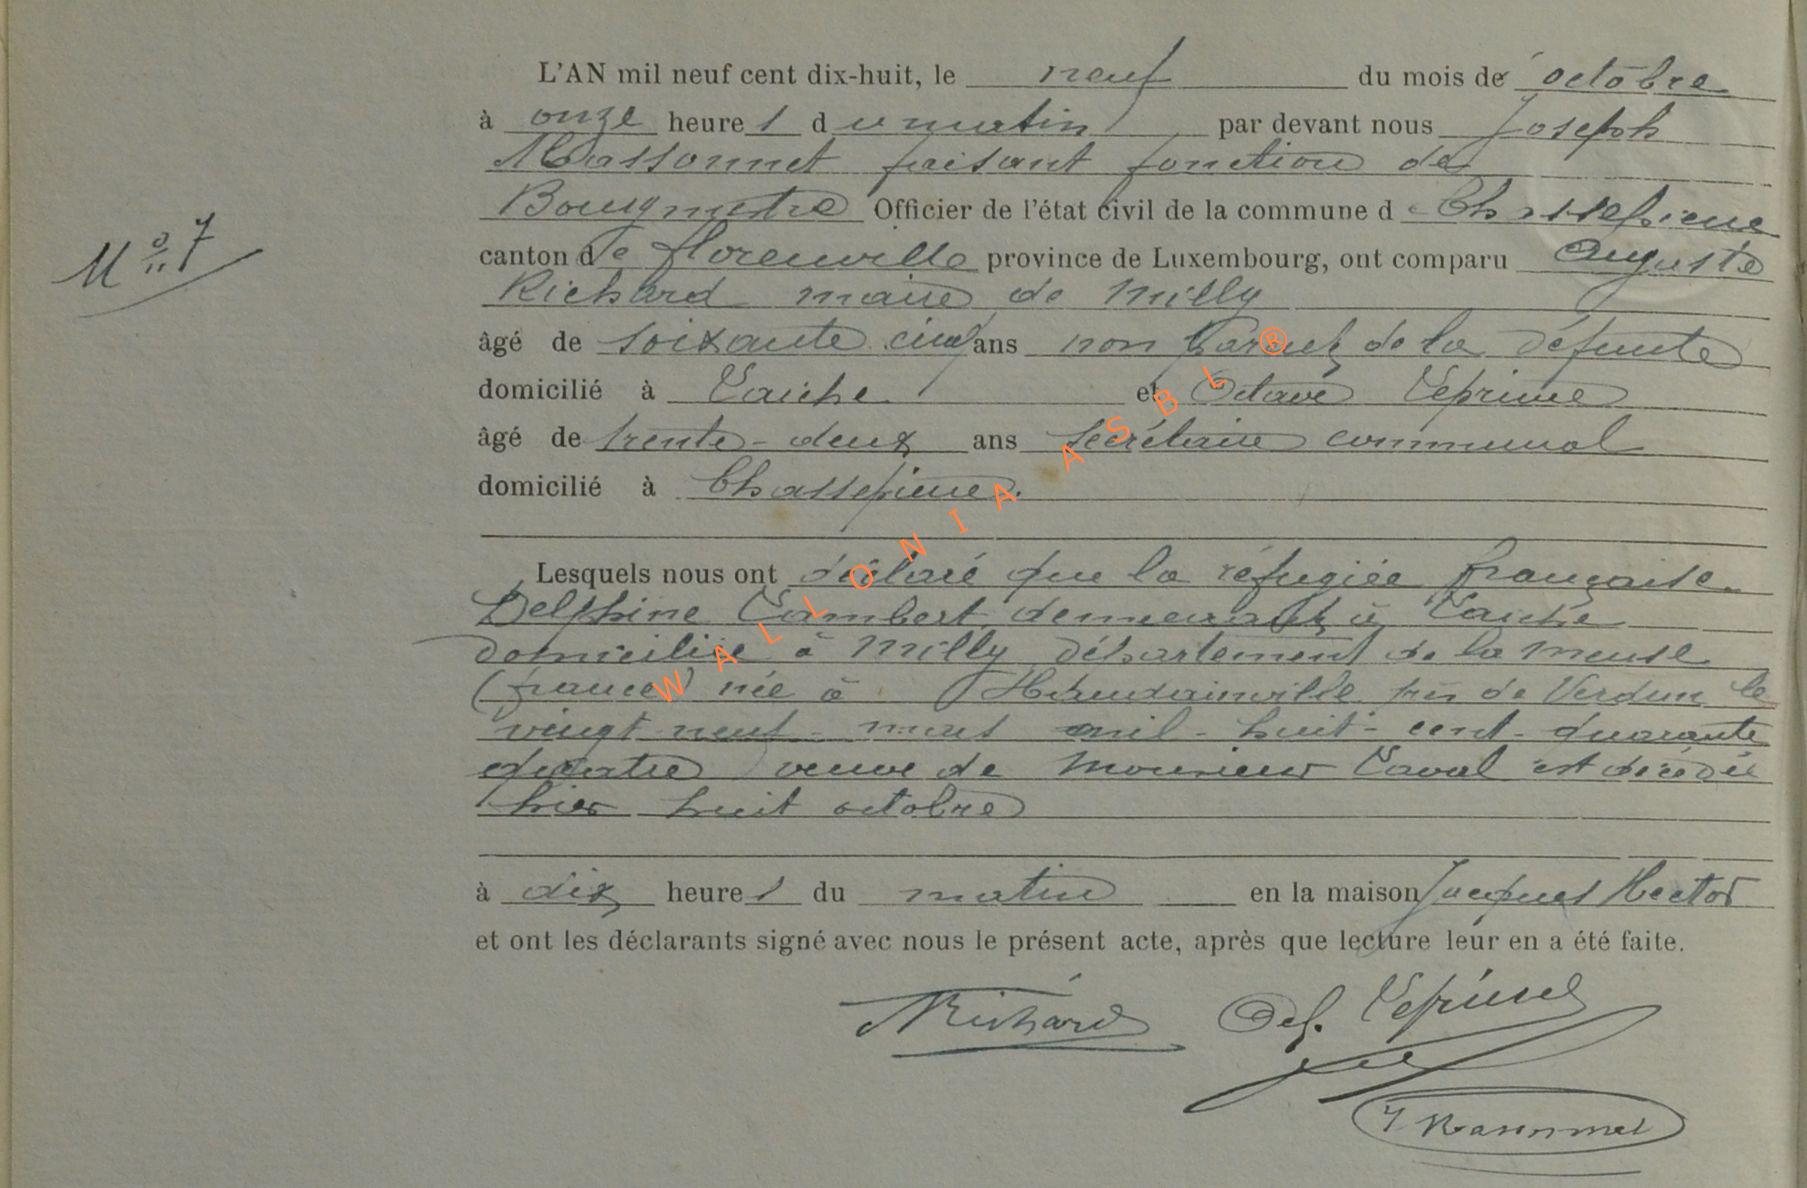 L'AN mil neuf cent dix-huit, le neuf du mois de octobre
à onze heures du matin par devant nous Joseph
Massonnet faisant fonction de
Bourgmestre Officier de l'état civil de la commune de Chassepierre
Nº 7
canton de Florenville province de Luxembourg, ont comparu Auguste
Richard maire de Milly
âgé de soixante cinq ans non parent de la défunte
domicilié à Laiche et Octave Leprime
âgé de trente-deux ans secrétaire communal
domicilié à Chassepierre.
Lesquels nous ont déclaré que la réfugiée française
Delphine Lambert, demeurant à Laiche
domiciliée à Milly département de la Meuse
(france) née à Haudainville près de Verdun le
vingt-neuf-mars mil-huit-cent-quarante
quatre veuve de Monsieur Laval est décédée
hier huit octobre
à dix heures du matin en la maison Jacques Hector
et ont les déclarants signé avec nous le présent acte, après que lecture leur en a été faite.
Richard Oct. Leprime
J Massonnet
WALLONIA ASBL ®